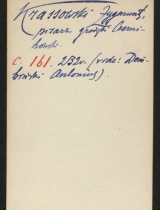 Krassowski Zygmunt,
pisarz grodzki Czerni-
howski.
c. 161. 232v. (vide: Dem-
bowski Antonius).